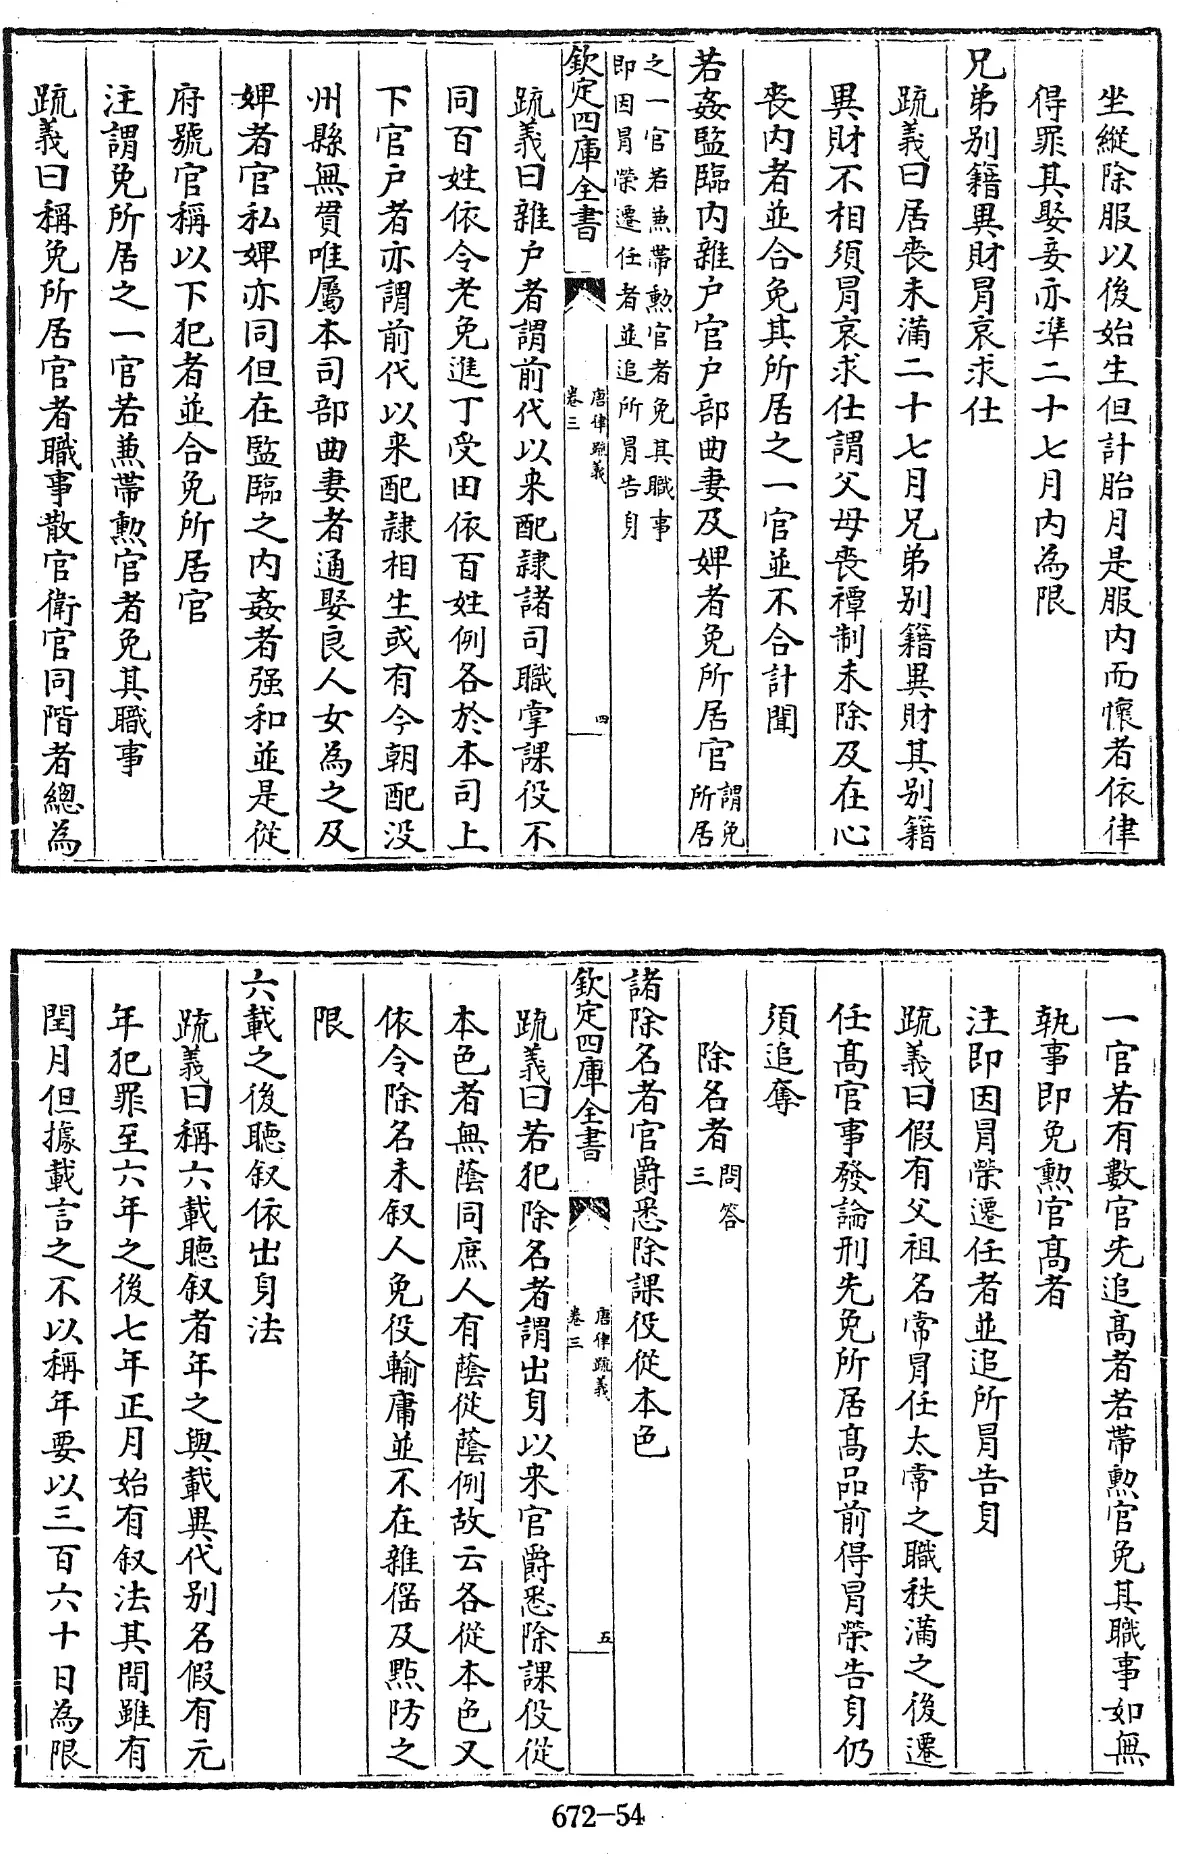 坐縱除服以後始生但計胎月是服内而懷者依律
得罪其娶妾亦準二十七月内為限
兄弟别籍異財冐哀求仕
疏義曰居喪未滿二十七月兄弟别籍異財其别籍
異財不相須冐哀求仕謂父母喪禫制未除及在心
喪内者並合免其所居之一官並不合計閏
若姦監臨内雜户官户部曲妻及婢者免所居官謂免
所居
之一官若兼帶勲官者免其職事
即因冐榮遷任者並追所冐告身
欽定四庫全書
唐律疏義
卷三
四
疏義曰雜户者謂前代以来配隷諸司職掌課役不
同百姓依令老免進丁受田依百姓例各於本司上
下官户者亦謂前代以来配隷相生或有今朝配没
州縣無貫唯屬本司部曲妻者通娶良人女為之及
婢者官私婢亦同但在監臨之内姦者强和並是從
府號官稱以下犯者並合免所居官
注謂免所居之一官若兼帶勲官者免其職事
疏義曰稱免所居官者職事散官衛官同階者總為
一官若有數官先追髙者若帶勲官免其職事如無
執事即免勲官髙者
注即因冐榮遷任者並追所冐告身
疏義曰假有父祖名常冐任太常之職秩滿之後遷
任髙官事發論刑先免所居髙品前得冐榮告身仍
須追奪
除名者問答
三
諸除名者官爵悉除課役從本色
欽定四庫全書
唐律疏義
卷三
五
疏義曰若犯除名者謂出身以来官爵悉除課役從
本色者無蔭同庶人有蔭從蔭例故云各從本色又
依令除名未叙人免役輸庸並不在雜徭及㸃防之
限
六載之後聽叙依出身法
疏義曰稱六載聽叙者年之與載異代别名假有元
年犯罪至六年之後七年正月始有叙法其間雖有
閏月但據載言之不以稱年要以三百六十日為限
672-54